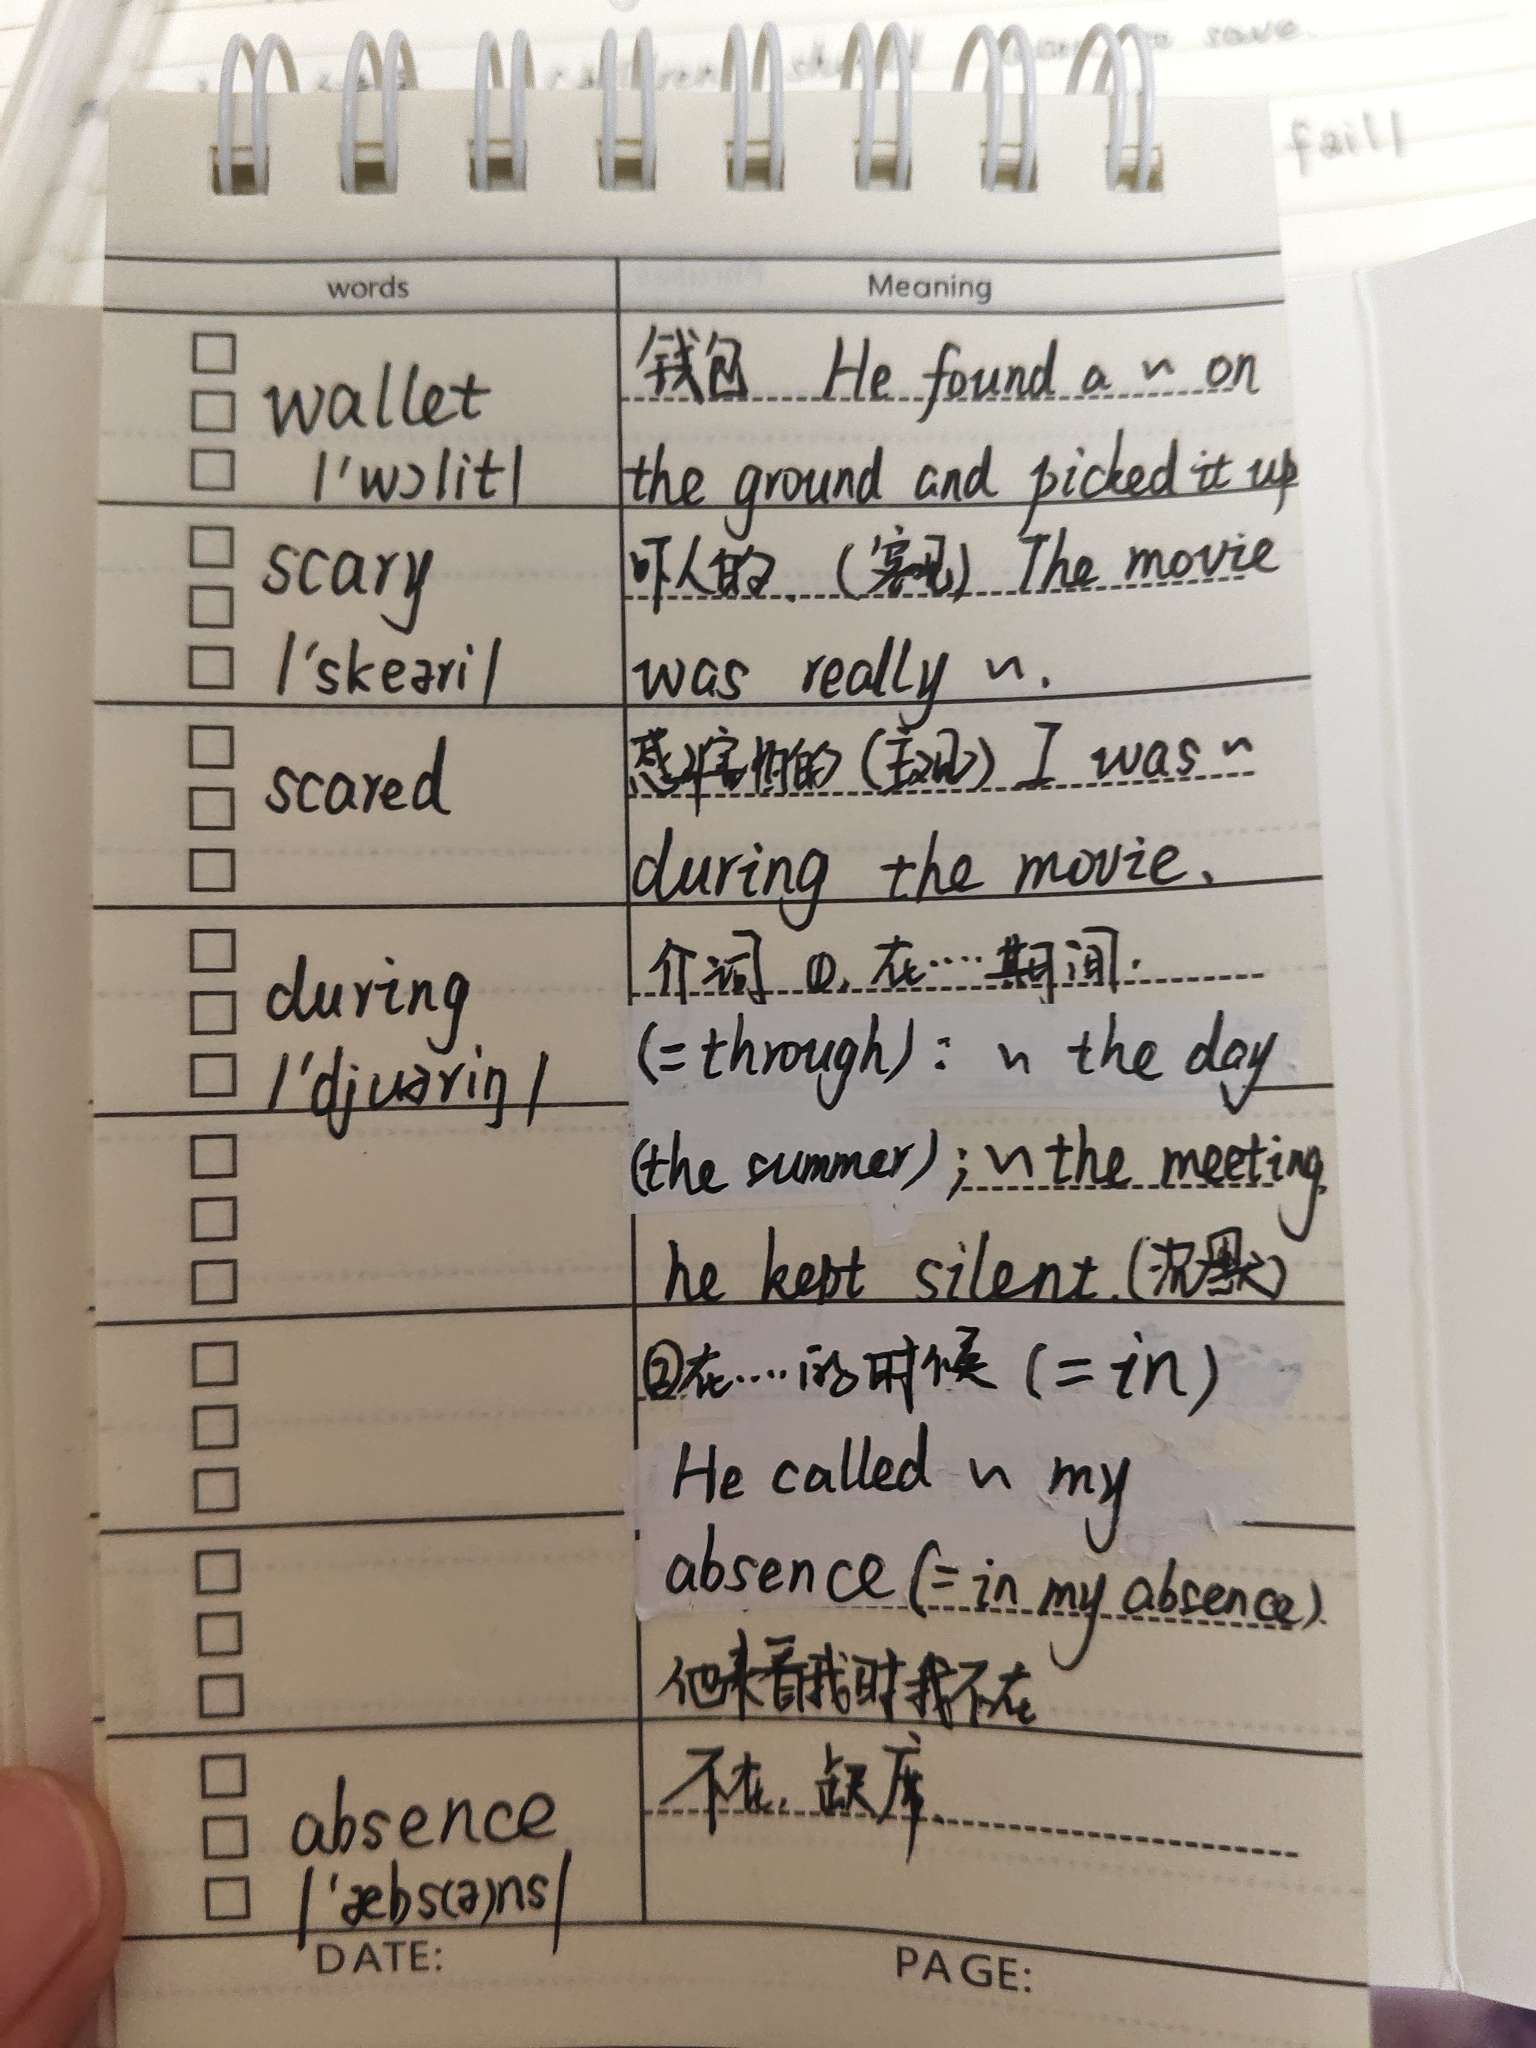 save.
faill
words Meaning
wallet
/'wɔlit/
钱包 He found a ~ on
the ground and picked it up
scary
/'skeəri/
吓人的. (客观) The movie
was really ~.
scared
感到害怕的 (主观) I was ~
during the movie.
during
/'djuəriŋ/
介词 ①. 在····期间.
(=through): ~ the day
(the summer); ~ the meeting,
he kept silent. (沉默)
②在····的时候 (=in)
He called ~ my
absence (=in my absence).
他来看我时我不在
absence
/'æbs(ə)ns/
不在. 缺席.
DATE: PAGE: